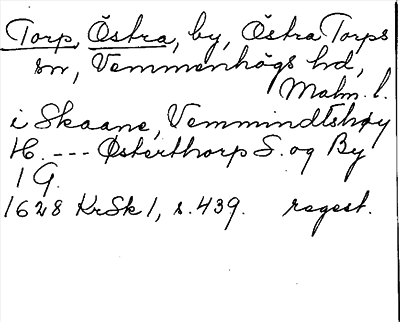 Torp, Östra, by, Östra Torps
sn, Vemmenhögs hd,
Malm. l.
i Skaane, Vemmindtshøy
H. --- Østerthorp S. og By
1 G.
1628 KrSk 1, s. 439. regest.